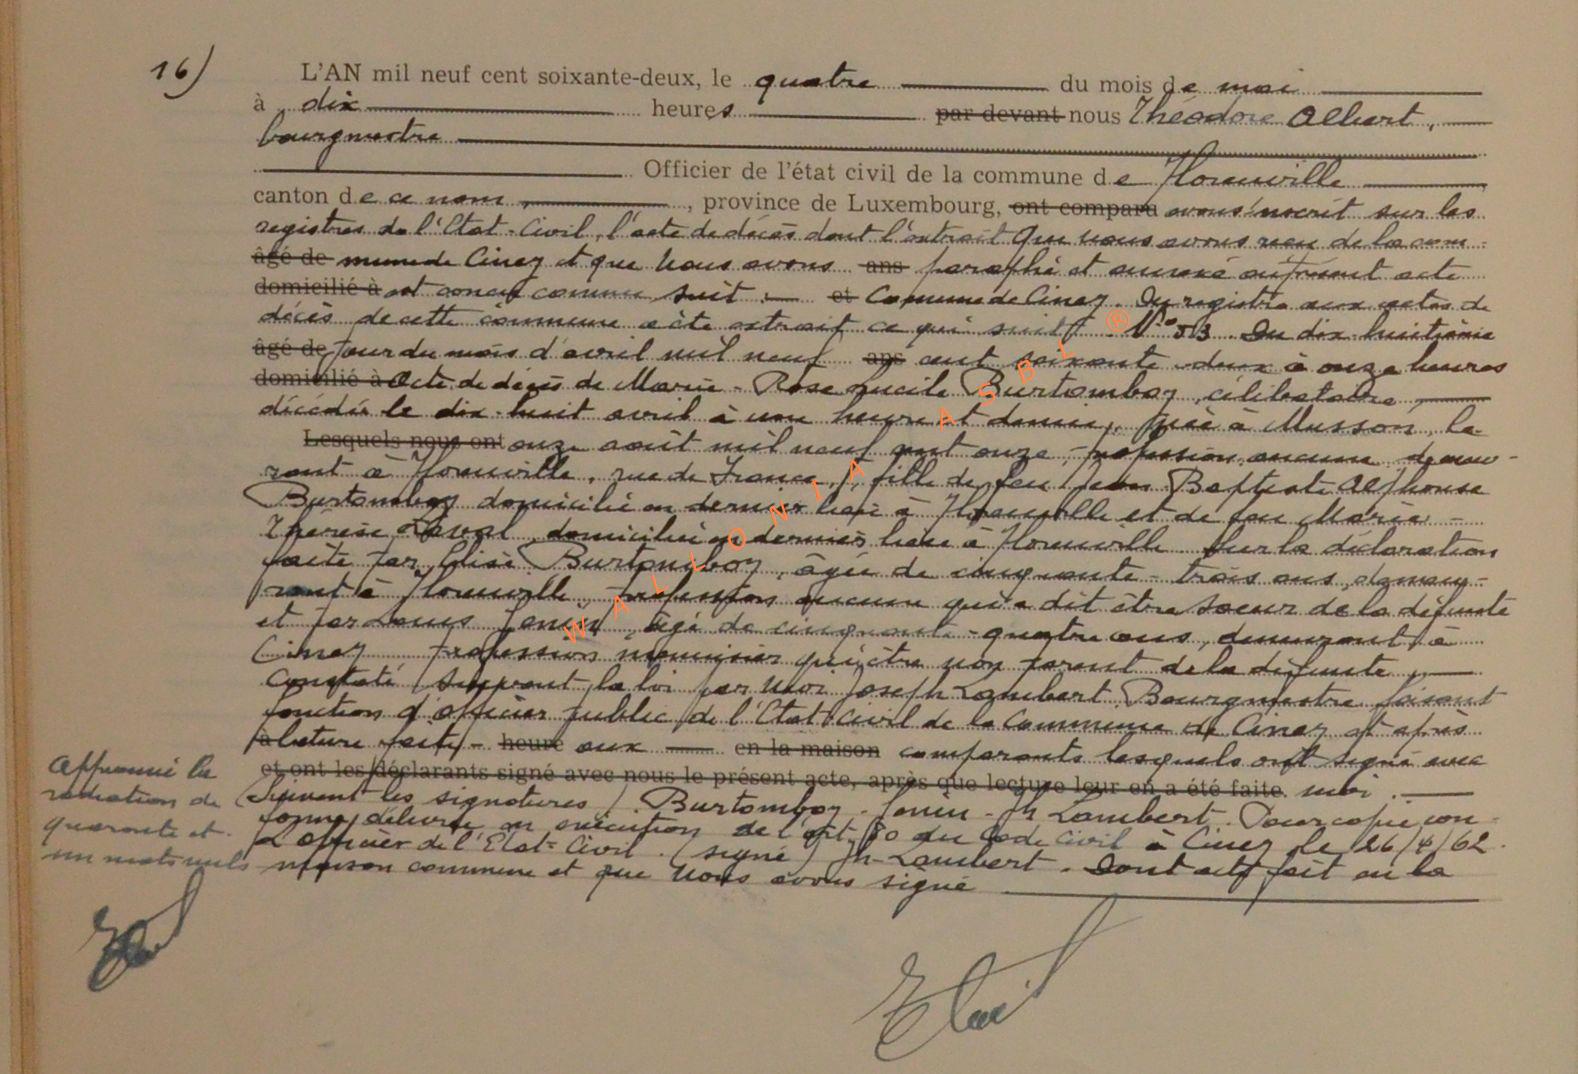 16)
L'AN mil neuf cent soixante-deux, le quatre du mois de mai
à dix heures par devant nous Théodore Albert,
bourgmestre
Officier de l'état civil de la commune de Florenville
canton de ce nom, province de Luxembourg, ont comparu avons inscrit sur les
registres de l'Etat-Civil, l'acte de décès dont l'extrait que nous avons reçu de la com-
âgé de mune de Ciney et que nous avons ans paraphé et annexé au présent acte
domicilié à est conçu comme suit :— et Commune de Ciney. Du registre aux actes de
décès de cette commune a été extrait ce qui suit : N° 53. Du dix-huitième
âgé de jour du mois d'avril mil neuf ans cent soixante-deux à onze heures
domicilié à Acte de décès de Marie-Rose Lucile Burtomboy, célibataire,
décédée le dix-huit avril à une heure et demie, née à Musson, le
Lesquels nous ont onze août mil neuf cent onze, profession aucune, demeu-
rant à Florenville, rue de France, fille de feu Jean Baptiste Alphonse
Burtomboy domicilié en dernier lieu à Florenville et de feu Marie-
Thérèse Laval, domiciliée en dernier lieu à Florenville. Sur la déclaration
faite par Elise Burtomboy, âgée de cinquante-trois ans, demeu-
rant à Florenville, profession aucune qui a dit être soeur de la défunte
et par Louis, âgé de cinquante-quatre ans, demeurant à
Ciney profession menuisier qui être non parent de la défunte,
Constaté suivant la loi par moi Joseph Lambert Bourgmestre faisant
fonction d'officier public de l'Etat Civil de la Commune de Ciney et après
lecture faite - heure aux en la maison comparants lesquels ont signé avec
et ont les déclarants signé avec nous le présent acte, après que lecture leur en a été faite. moi.
Suivent les signatures) Burtomboy - Jh Lambert. Pour copie con-
forme délivrée en exécution de l'art. 80 du Code Civil à Ciney le 26/4/62.
L'Officier de l'Etat-Civil. (signé) Jh-Lambert. Dont acte fait en la
maison commune et que nous avons signé
Approuvé la
radiation de
quarante et
un mots nuls
WALLONIA ASBL ®